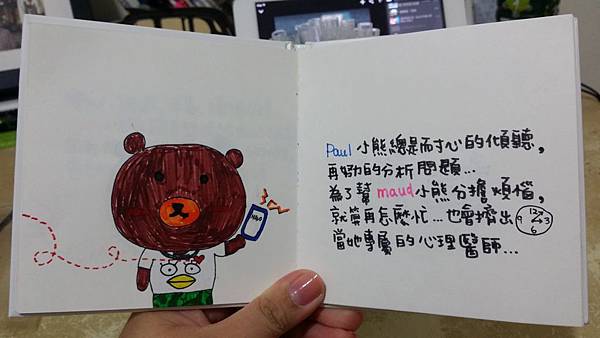 Paul 小熊總是耐心的傾聽，
再努力的分析問題...
為了幫 maud 小熊分擔煩惱，
就算再怎麼忙...也會擠出
12
9 3
6
當她專屬的心理醫師...